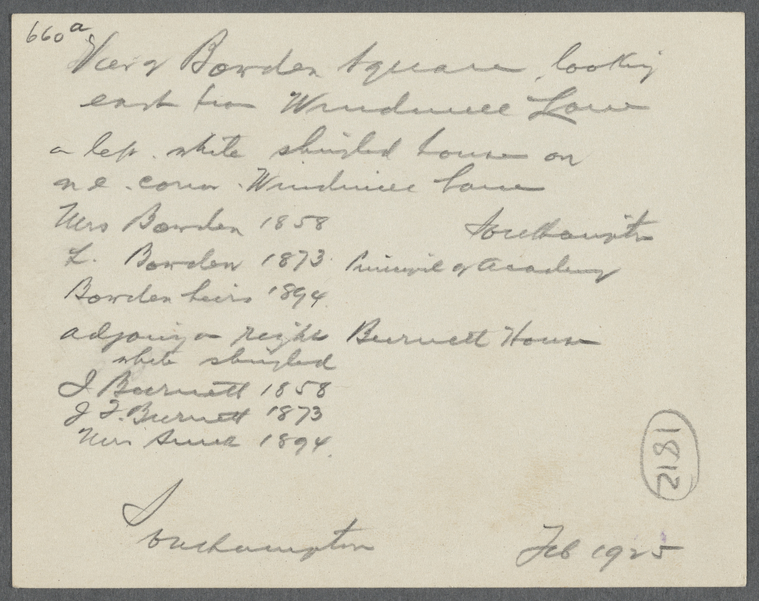 660a
View of Bowden Square, looking
east from Windmill Lane
a left. white shingled house on
n e. corner. Windmill Lane
Mrs Bowden 1858 Southampton
L. Bowden 1873 Principal of Academy
Bowden heirs 1894
adjoing on right Burnett House
white shingled
J Burnett 1858
J F. Burnett 1873
Mrs 1894.
Southampton
Feb 1925
1812